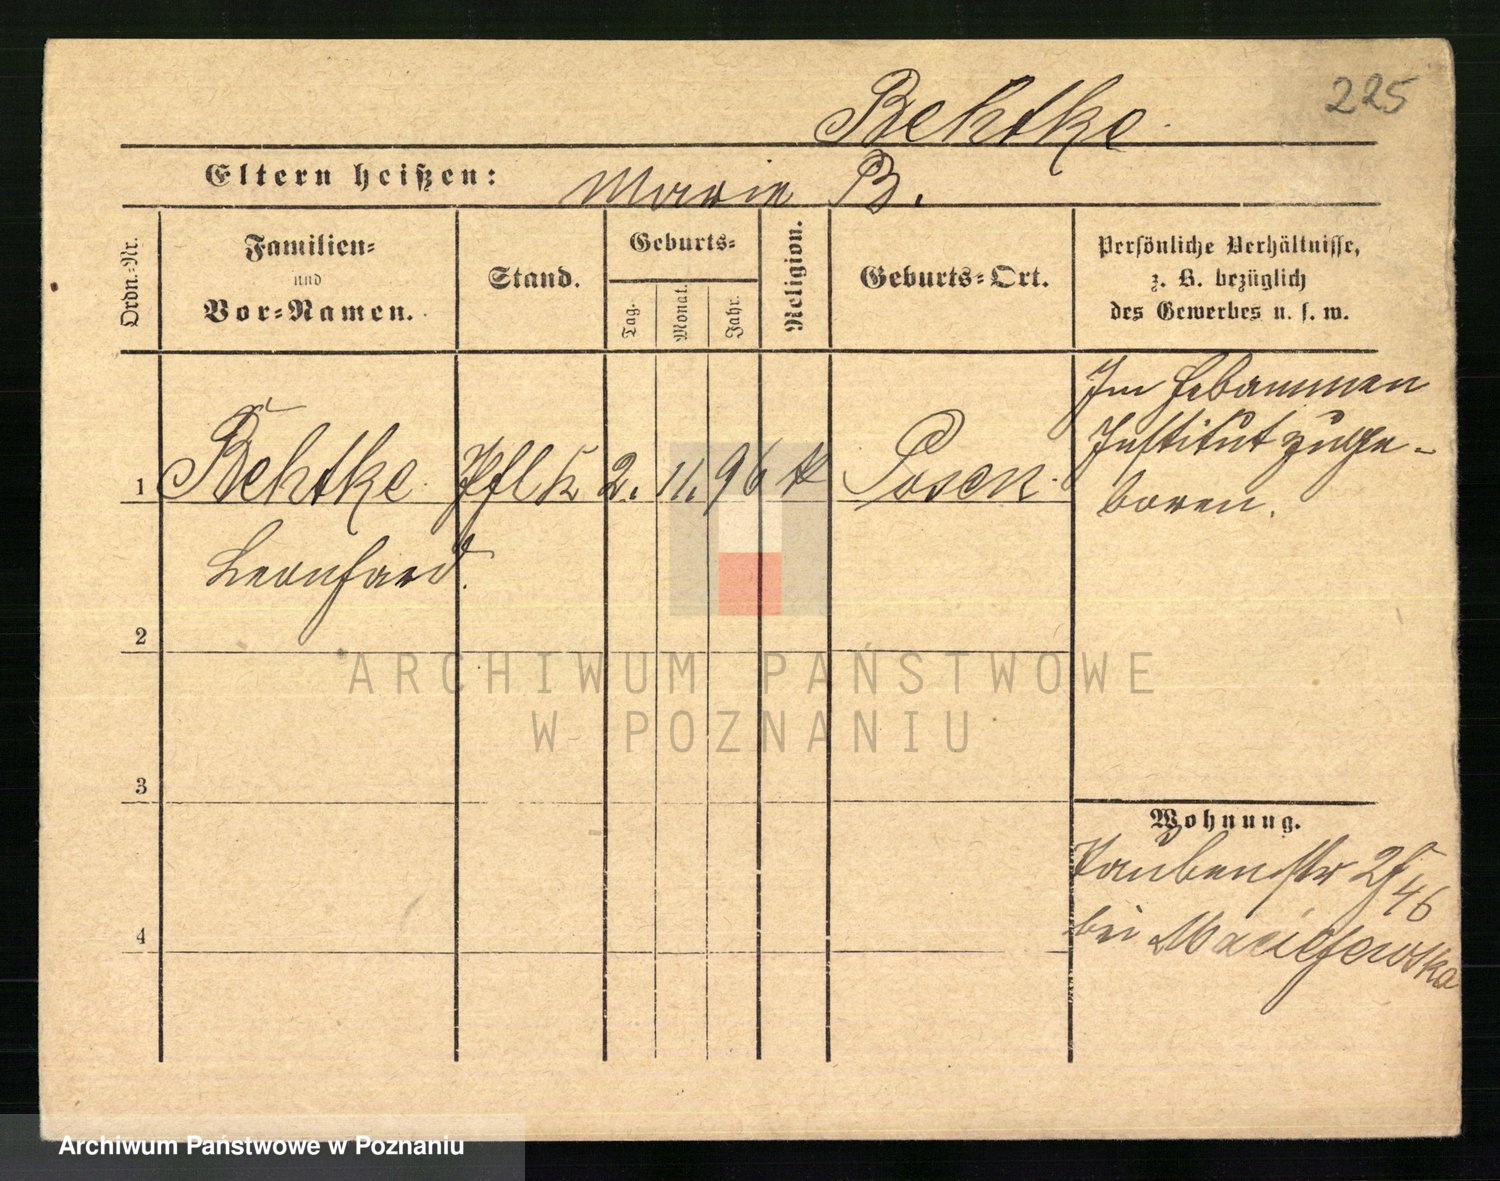 225
Behtke
Eltern heißen: Marie B.
Ordn.-Nr.
Familien-
und
Vor-Namen.
Stand.
Geburts-
Tag.
Monat.
Jahr.
Religion.
Geburts-Ort.
Persönliche Verhältnisse,
z. B. bezüglich
des Gewerbes u. s. w.
1 Behtke Pfl K 2. 11. 96 k Posen.
Leonhard.
Im Hebammen
Institut zuge-
boren.
2
3
4
Wohnung.
Taubenstr 2
bei Maciejewska
ARCHIWUM PAŃSTWOWE
W POZNANIU
Archiwum Państwowe w Poznaniu